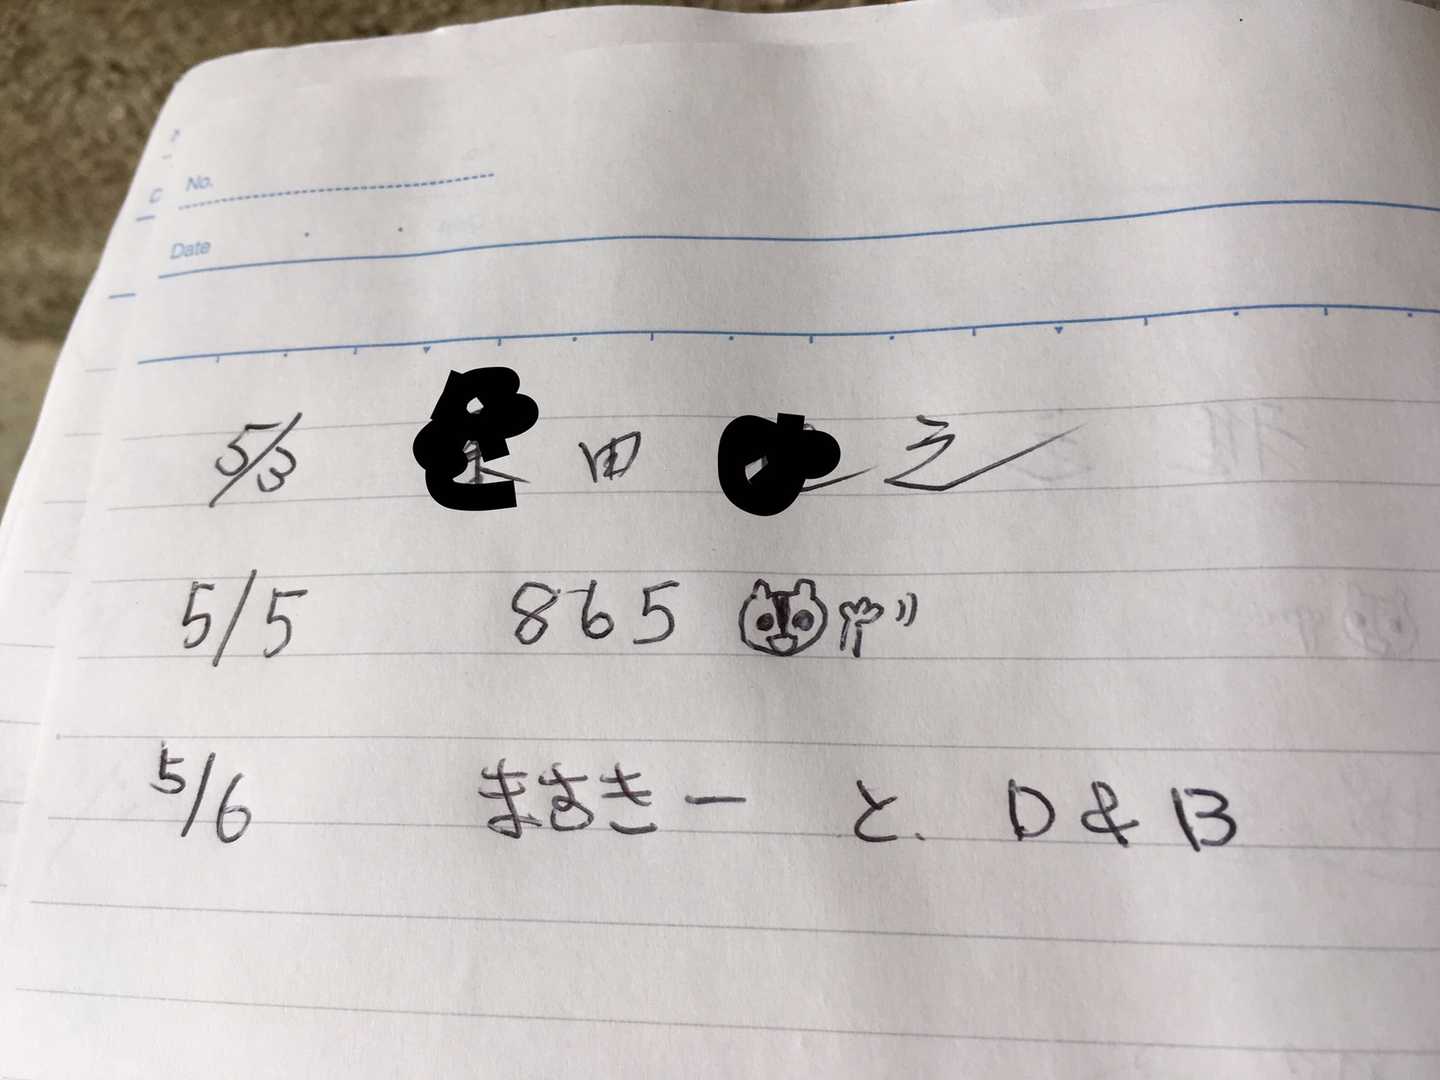 No.
Date
5/3 田
5/5 865
5/6 まさきー と D & B